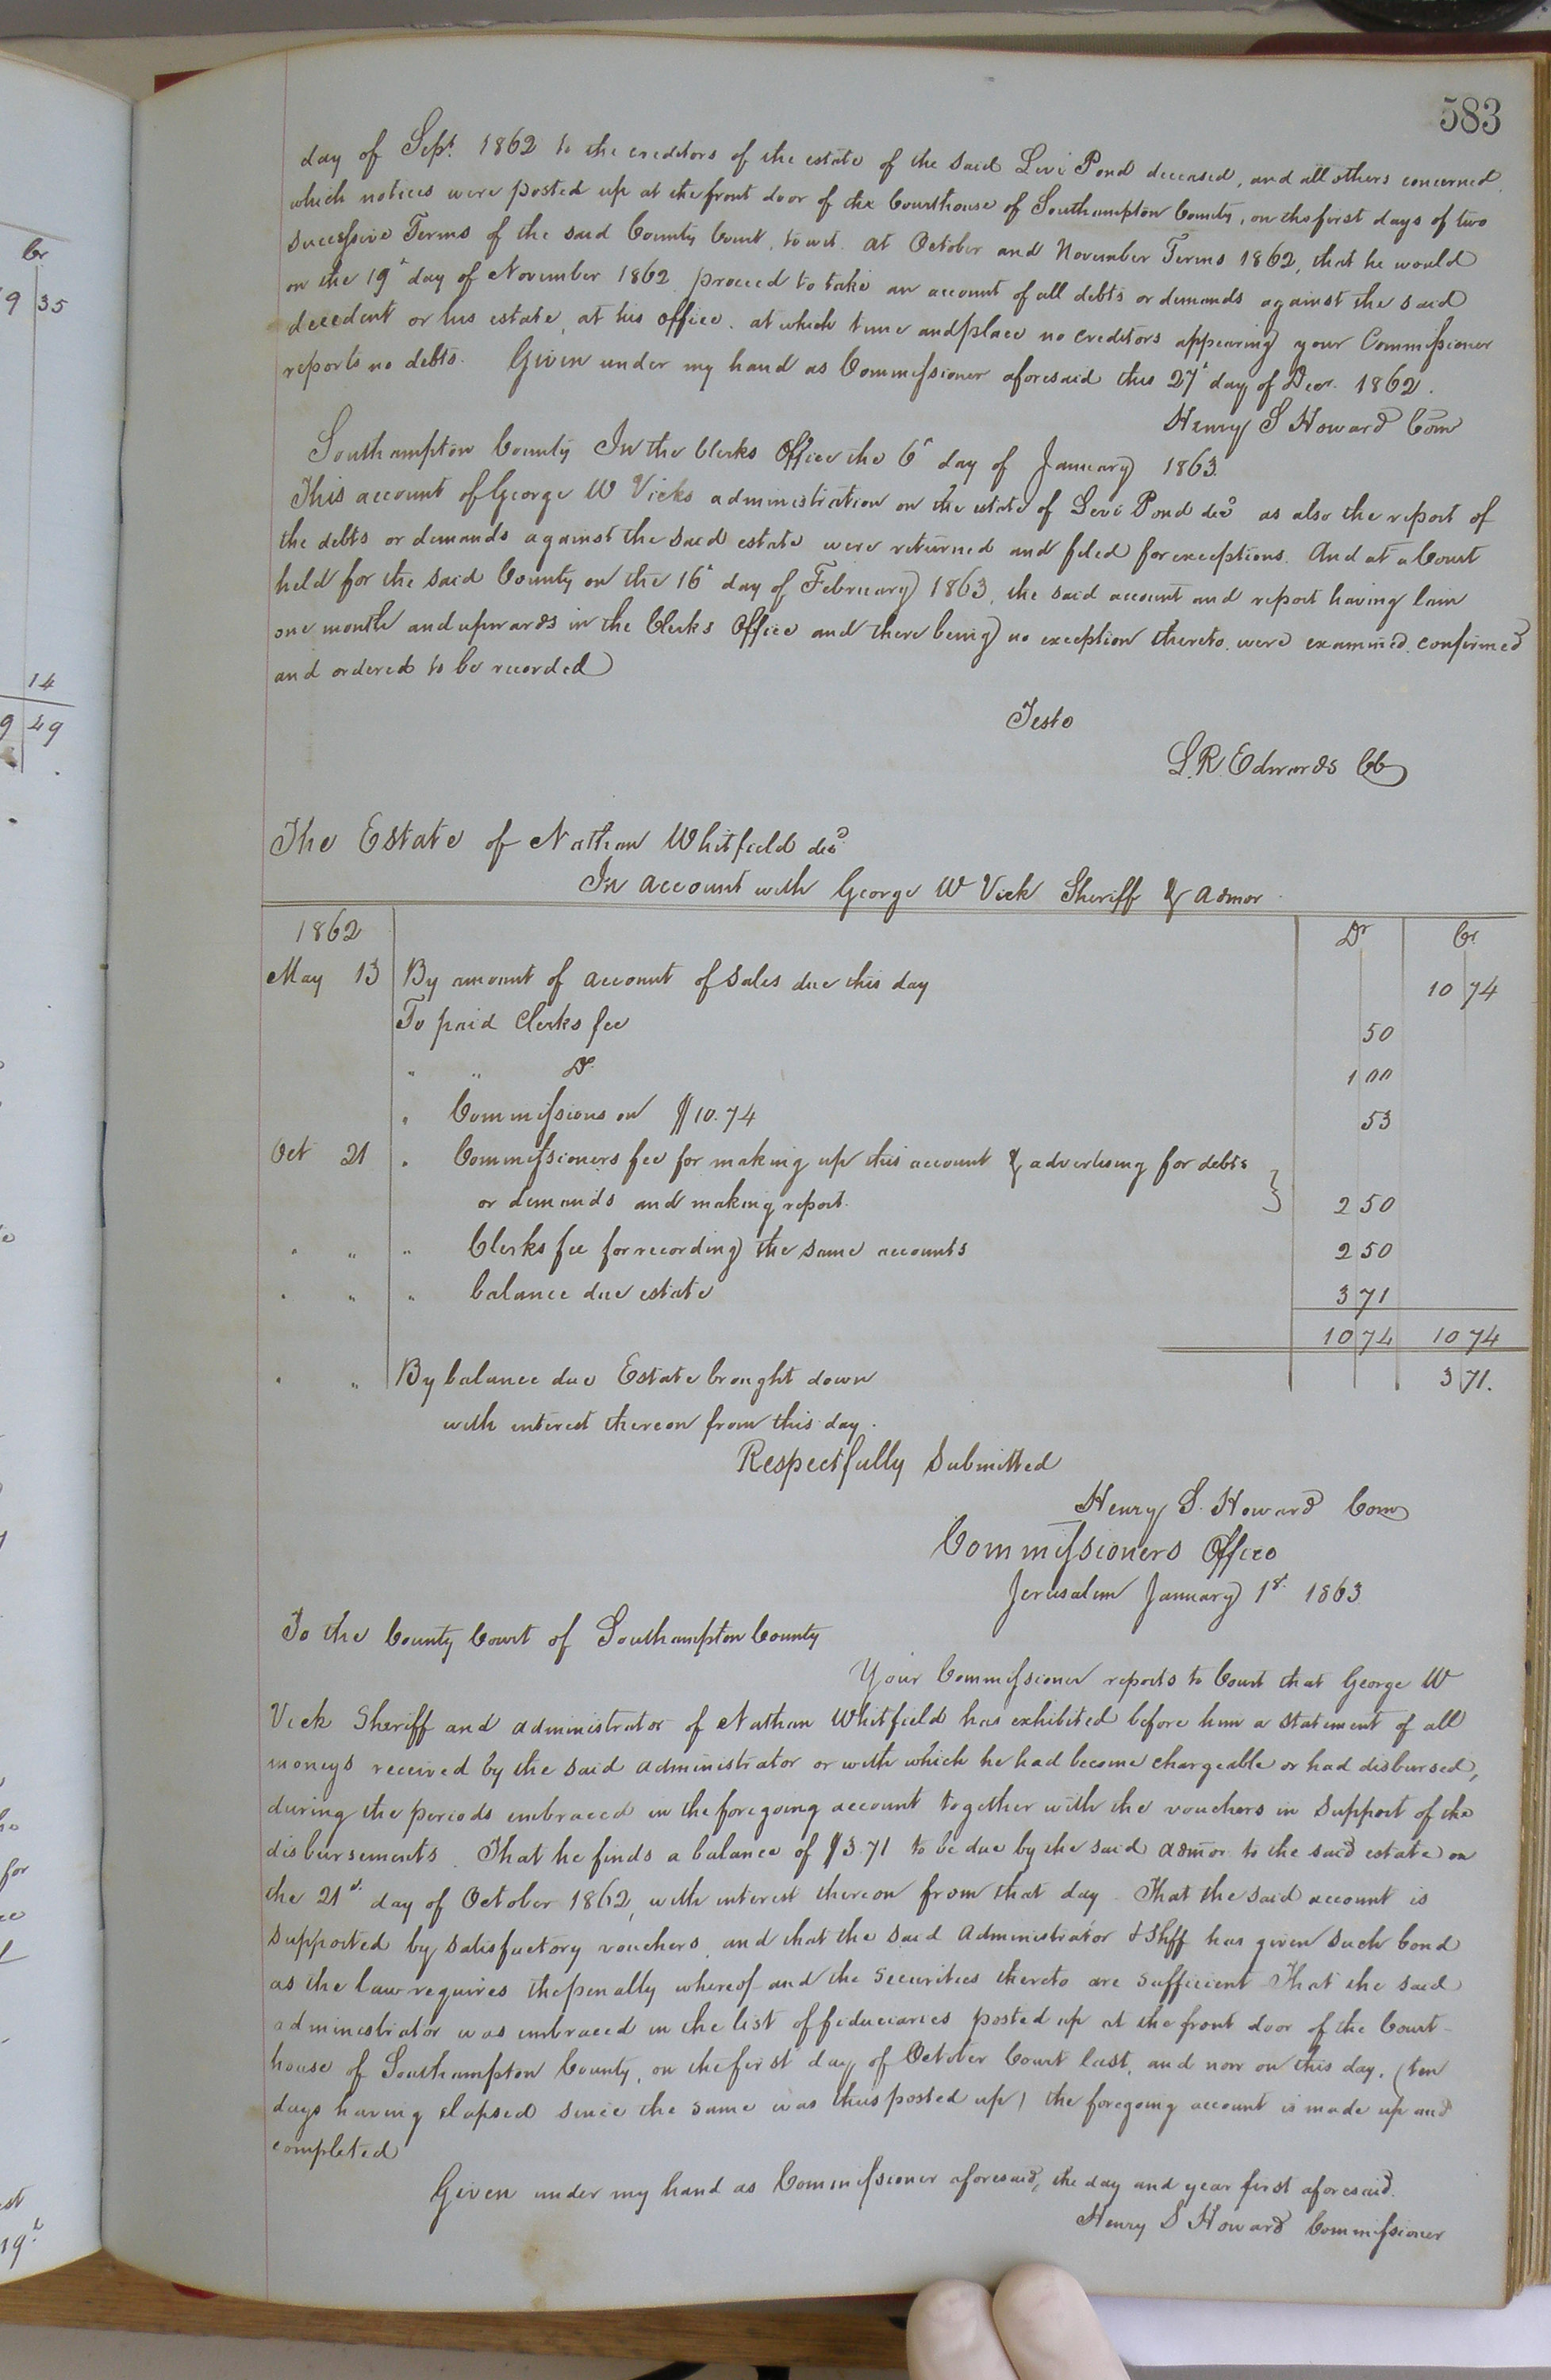 583
day of Sept. 1862 to the creditors of the estate of the said Levi Pond deceased, and all others concerned,
which notices were posted up at the front door of the Courthouse of Southampton County, on the first days of two
successive Terms of the said County Court, to wit. at October and November Terms 1862, that he would
on the 19th day of November 1862 proceed to take an account of all debts or demands against the said
decedent or his estate, at his office. at which time and place no creditors appearing your Commissioner
reports no debts. Given under my hand as Commissioner aforesaid this 27th day of Decr. 1862.
Henry S Howard Com
Southampton County In the Clerks Office the 6th day of January 1863.
This account of George W Vicks administration on the estate of Levi Pond decd as also the report of
the debts or demands against the said estate were returned and filed for exceptions. And at a Court
held for the said County on the 16th day of February 1863, the said account and report having lain
one month and upwards in the Clerks Office and there being no exception thereto were examined. confirmed
and ordered to be recorded
Teste
L. R. Edwards CC
The Estate of Nathan Whitfield decd
In account with George W Vick Sheriff & admor
1862 Dr Cr
May 13 By amount of account of Sales due this day 10 74
To paid Clerks fee 50
" " Do. 1 00
" Commissions on $10.74 53
Oct 21 " Commissioners fee for making up this account & advertising for debts
or demands and making report. } 2 50
" " " Clerks fee for recording the same accounts 2 50
" " " balance due estate 3 71
10 74 10 74
" " By balance due Estate brought down 3 71.
with interest thereon from this day.
Respectfully Submitted
Henry S. Howard Com
Commissioners Office
Jerusalem January 1st. 1863
To the County Court of Southampton County
Your Commissioner reports to Court that George W
Vick Sheriff and administrator of Nathan Whitfield has exhibited before him a statement of all
moneys received by the said administrator or with which he had become chargeable or had disbursed,
during the periods embraced in the foregoing account together with the vouchers in support of the
disbursements. That he finds a balance of $3.71 to be due by the said admor to the said estate on
the 21st day of October 1862, with interest thereon from that day. That the said account is
supported by satisfactory vouchers, and that the said Administrator & Shff has given such bond
as the law requires the penalty whereof and the securities thereto are sufficient That the said
administrator was embraced in the list of fiduciaries posted up at the front door of the Court-
house of Southampton County, on the first day of October Court last, and now on this day, (ten
days having elapsed since the same was thus posted up) the foregoing account is made up and
completed
Given under my hand as Commissioner aforesaid, the day and year first aforesaid.
Henry S Howard Commissioner
Cr
9 35
14
9 49
for
19th